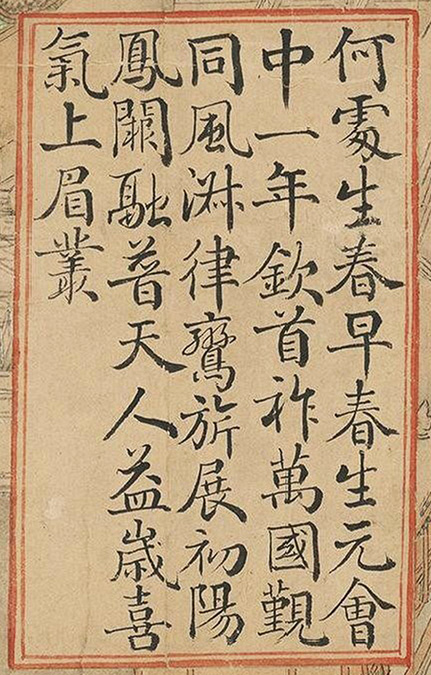 何處生春早春生元會
中一年欽首祚萬國覲
同風淑律鸞旂展初陽
鳳闕融普天人益歲喜
氣上眉叢